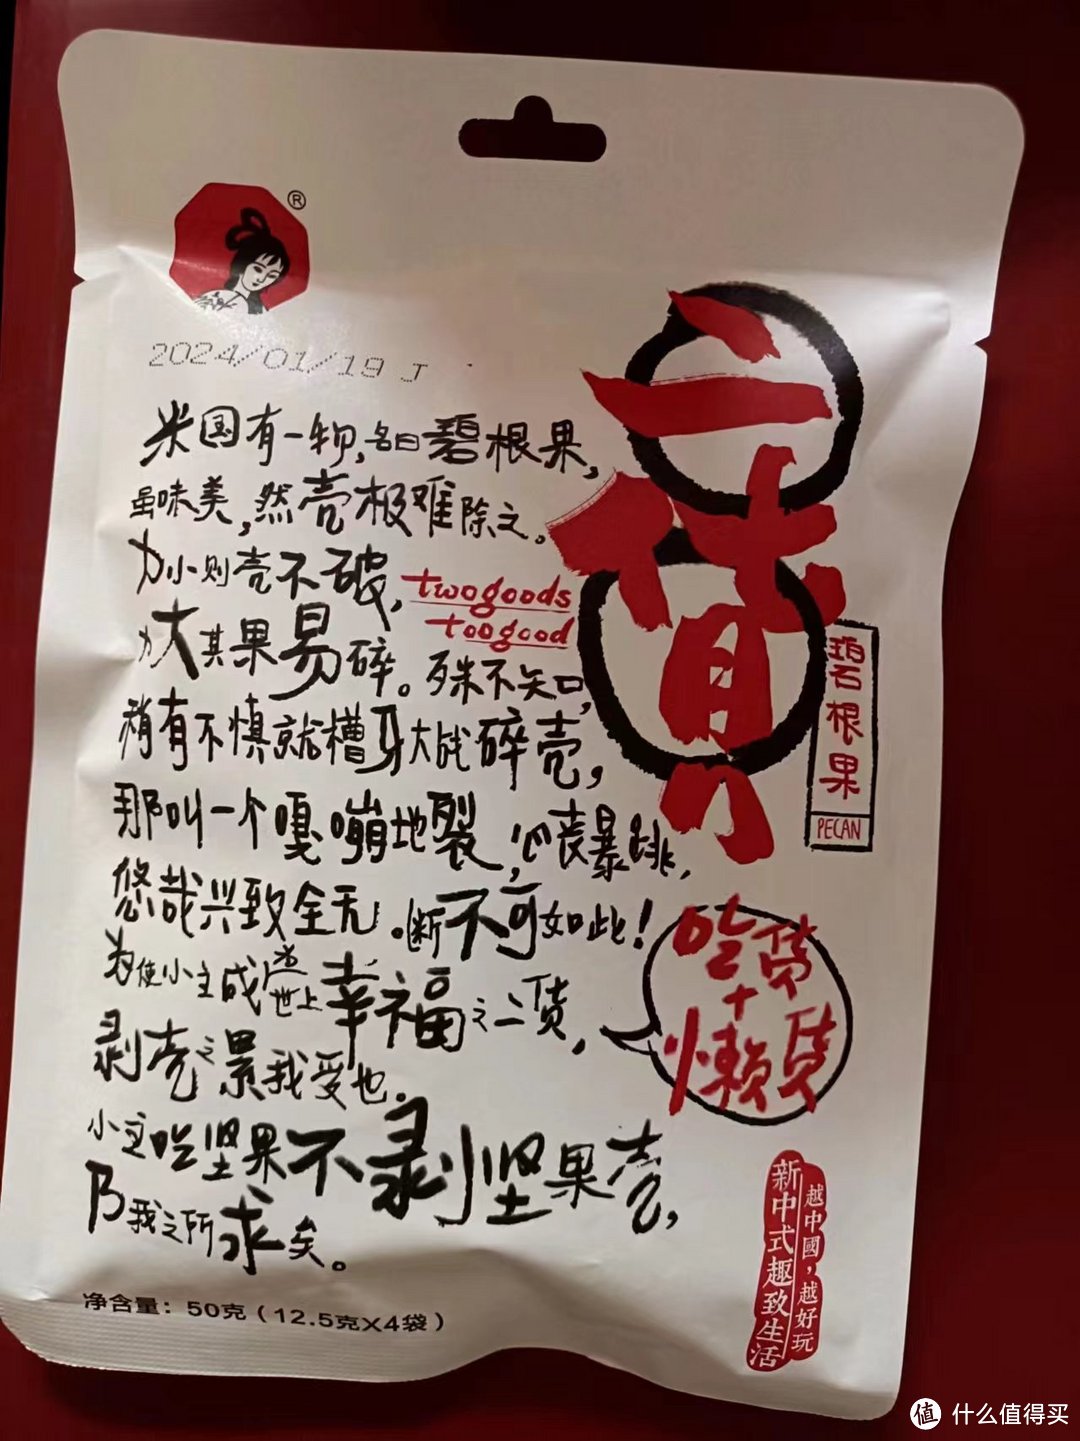 ®
2024/01/19 J
米国有一物,名曰碧根果,
虽味美,然壳极难除之。
力小则壳不破,
力大其果易碎。殊不知,
稍有不慎就糟身大战碎壳,
那叫一个嘎嘣地裂,心丧暴跳,
悠哉兴致全无。断不可如此!
为使小主成为世上幸福之二货,
剥壳之累我受也。
小主吃坚果不剥坚果壳,
乃我之所求矣。
twogoods
toogood
二货
碧根果
PECAN
吃货
+
懒货
越中國,越好玩
新中式趣致生活
净含量:50克(12.5克X4袋)
值 什么值得买